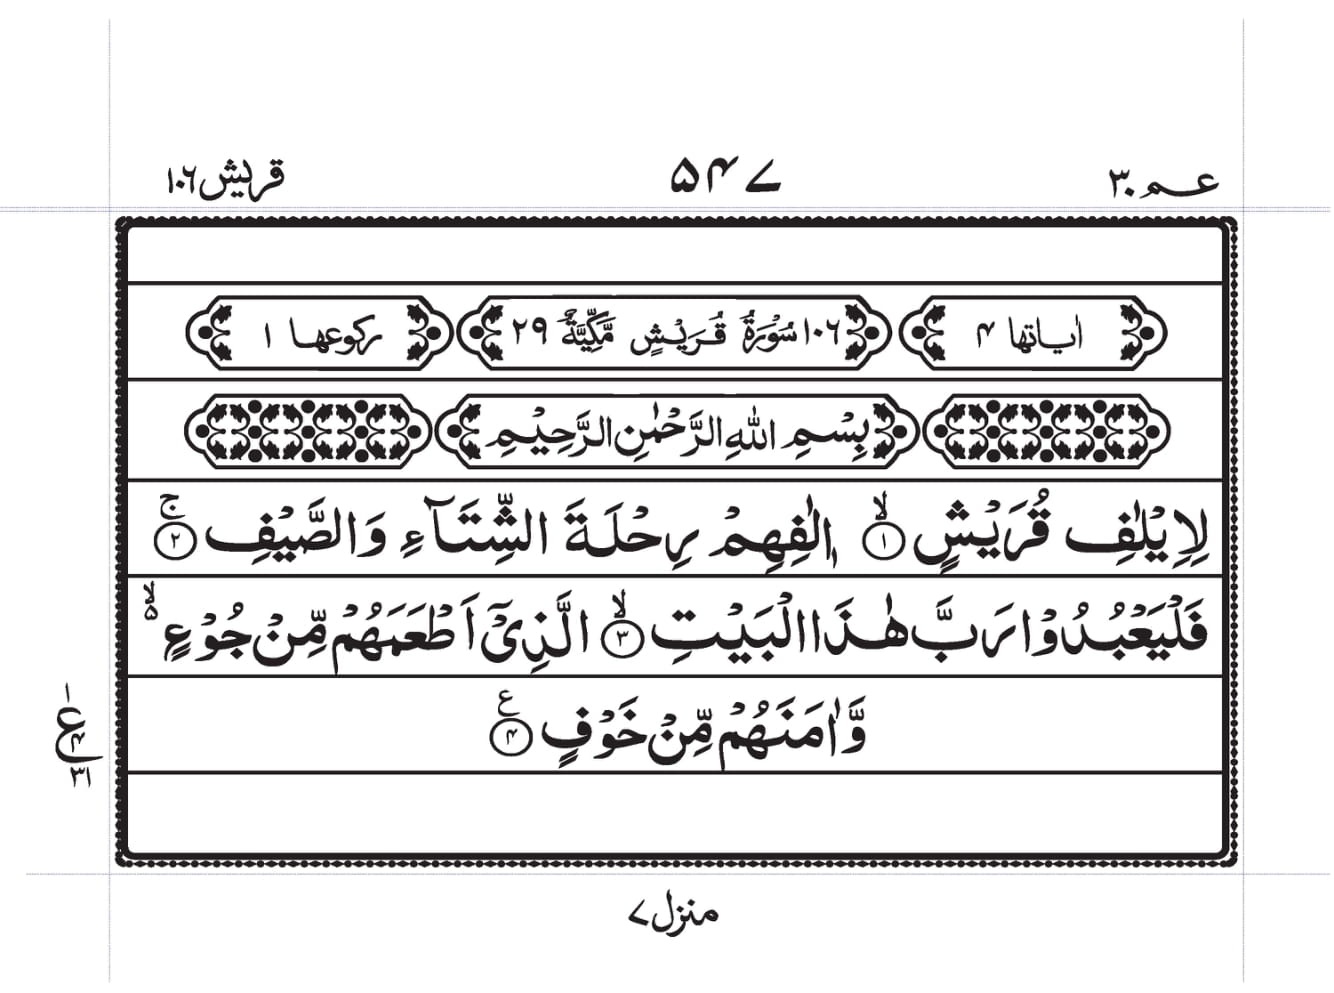 عم ٣٠
۵۴۷
قریش ١٠٦
اٰیاتها ۴
١٠٦ سُوْرَةُ قُرَيْشٍ مَّكِّيَّةٌ ٢٩
رکوعها ١
بِسْمِ اللّٰهِ الرَّحْمٰنِ الرَّحِيْمِ
لِاِيْلٰفِ قُرَيْشٍ ۙ﴿١﴾ اٖلٰفِهِمْ رِحْلَةَ الشِّتَآءِ وَالصَّيْفِ ۚ﴿٢﴾
فَلْيَعْبُدُوْا رَبَّ هٰذَا الْبَيْتِ ۙ﴿٣﴾ الَّذِيْٓ اَطْعَمَهُمْ مِّنْ جُوْعٍ ۵ۙ
وَّاٰمَنَهُمْ مِّنْ خَوْفٍ ﴿۴﴾ ع
١
ع
۴
٣١
منزل ۷